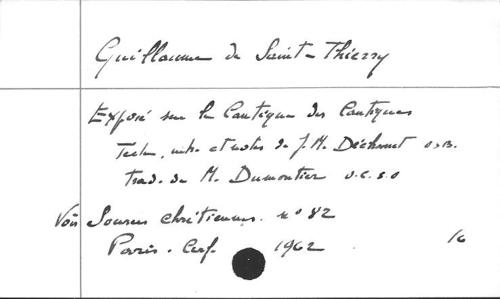 Guillaume de Saint-Thierry
Exposé sur le Cantique des Cantiques
Texte, intr. et notes de J.M. Déchanet o.s.B.
trad. de M. Dumontier O.C.S.O
Voir Sources chrétiennes. n° 82
Paris. Cerf. 1962 16